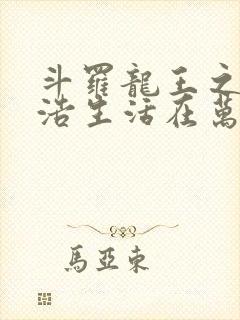 斗羅龍王之
浩生活在萬
馬亞東